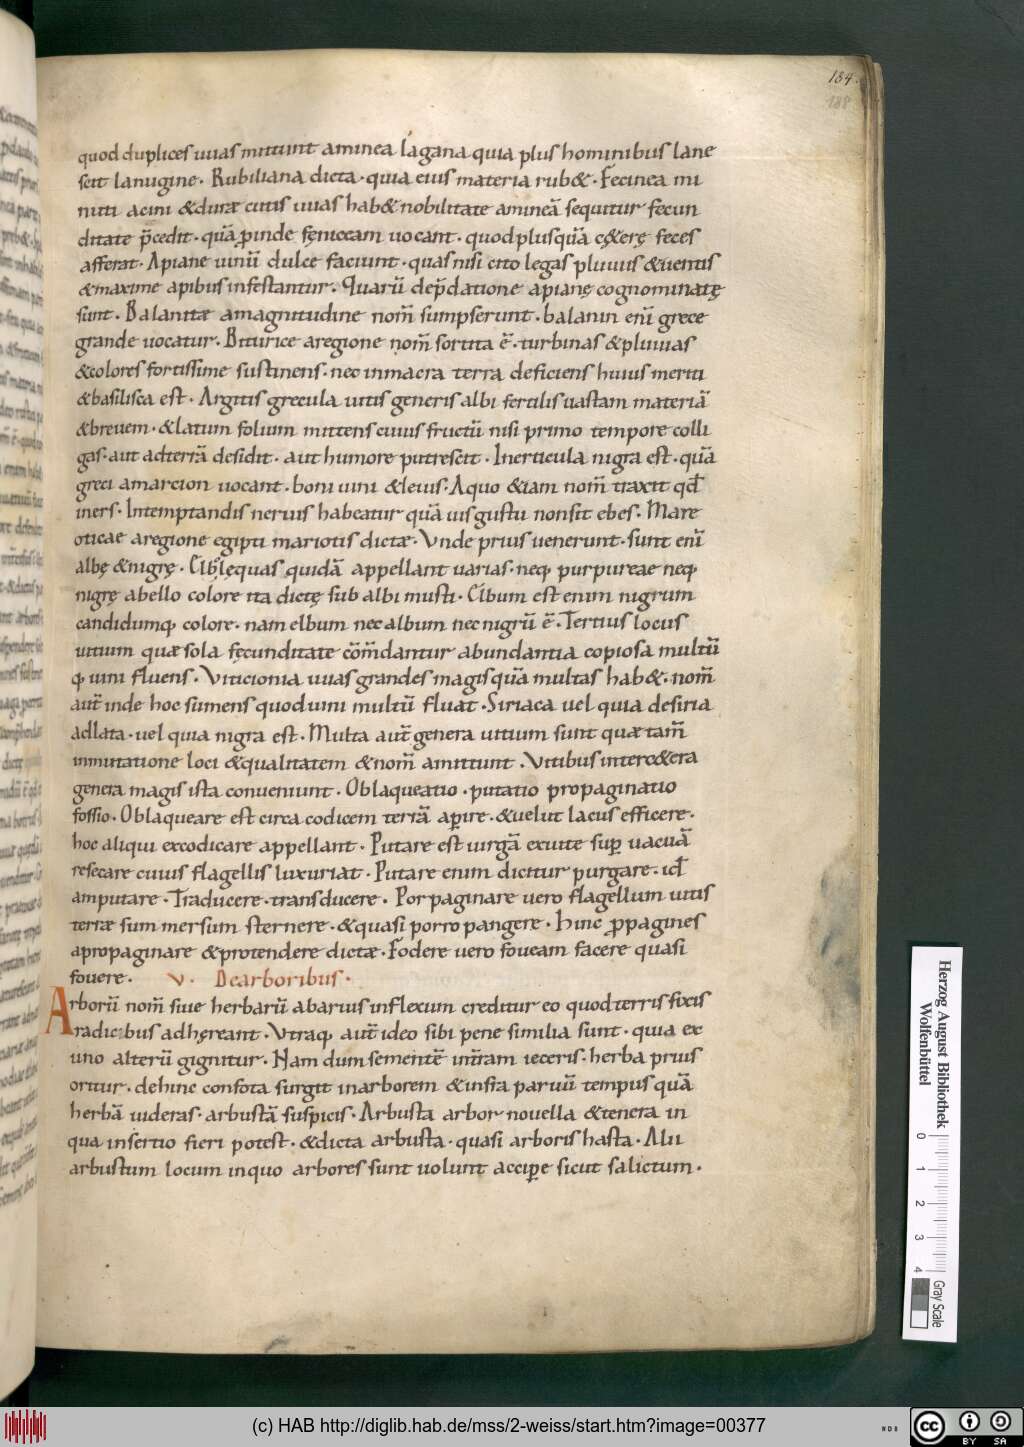 184.
188
quod duplices uuas mittunt aminea lagana quia plus hominibus lane
scit lanugine. Rubiliana dicta. quia eius materia rub&. Fecinea mi
nuti acini &duræ cutis uuas hab& nobilitate amineā sequitur fecun
ditate p̄cedit. quā ꝓinde fęniceam uocant. quod plusquā cęterę feces
afferat. Apiane uinū dulce faciunt. quas nisi cito legas pluuiis &uentis
&maxime apibus infestantur. Quarū dep̄datione apianę cognominatę
sunt. Balanitæ amagnitudine nom̄ sumpserunt. balanin eni̅ grece
grande uocatur. Biturice aregione nom̄ sortita ē. turbinas &pluuias
&colores fortissime sustinens. nec inmacra terra deficiens huius meriti
&basilisca est. Argitis grecula uitis generis albi fertilis uastam materiā
&breuem. &latum folium mittens cuius fructū nisi primo tempore colli
gas. aut adterrā desidit. aut humore putrescit. Inerticula nigra est. quā
greci amarcion uocant. boni uini &leuis. Aquo &iam nom̄ traxit qđ
iners. Intemptandis neruis habeatur quā uis gustu nonsit ebes. Mare
oticae aregione egipti mariotis dictæ. Vnde prius uenerunt. sunt eni̅
albę &nigrę. quas quidā appellant uarias. neqꝫ purpureae neqꝫ
nigrę abello colore ita dictę sub albi musti. Elbum est enim nigrum
candidumqꝫ colore. nam elbum nec album nec nigrū ē. Tertius locus
uitium quæ sola fęcunditate cōm̄dantur abundantia copiosa multū
qꝫ uini fluens. Viticionia uuas grandes magisquā multas hab&. nom̄
aut̄ inde hoc sumens quod uini multū fluat. Siriaca uel quia desiria
adlata. uel quia nigra est. Multa aut̄ genera uitium sunt quæ tam̄
inmutatione loci &qualitatem &nom̄ amittunt. Vitibus interc&era
genera magis ista conueniunt. Oblaqueatio. putatio propaginatio
fossio. Oblaqueare est circa codicem terrā aꝑire. &uelut lacus efficere.
hoc aliqui excodicare appellant. Putare est uirgā exuite suꝑ uacuā
resecare cuius flagellis luxuriat. Putare enim dicitur purgare. id̄
amputare. Traducere. transducere. Porpaginare uero flagellum uitis
terræ sum mersum sternere. &quasi porro pangere. hinc ꝓpagines
apropaginare &protendere dictæ. Fodere uero foueam facere quasi
fouere. V. Dearboribus.
Arborū nom̄ siue herbarū abaruis inflexum creditur eo quod terris fixis
radicibus adhęreant. Vtraqꝫ aut̄ ideo sibi pene similia sunt. quia ex
uno alterū gignitur. Nam dum sementē int̄ram ieceris. herba prius
oritur. dehinc confota surgit inarborem &infra paruū tempus quā
herbā uideras. arbustā suspicis. Arbusta arbor nouella &tenera in
qua insertio fieri potest. &dicta arbusta. quasi arboris hasta. Alii
arbustum locum inquo arbores sunt uolunt acciꝑe sicut salictum.
Herzog August Bibliothek
Wolfenbüttel
0 1 2 3 4
Gray Scale
(c) HAB http://diglib.hab.de/mss/2-weiss/start.htm?image=00377
WDB
cc BY SA